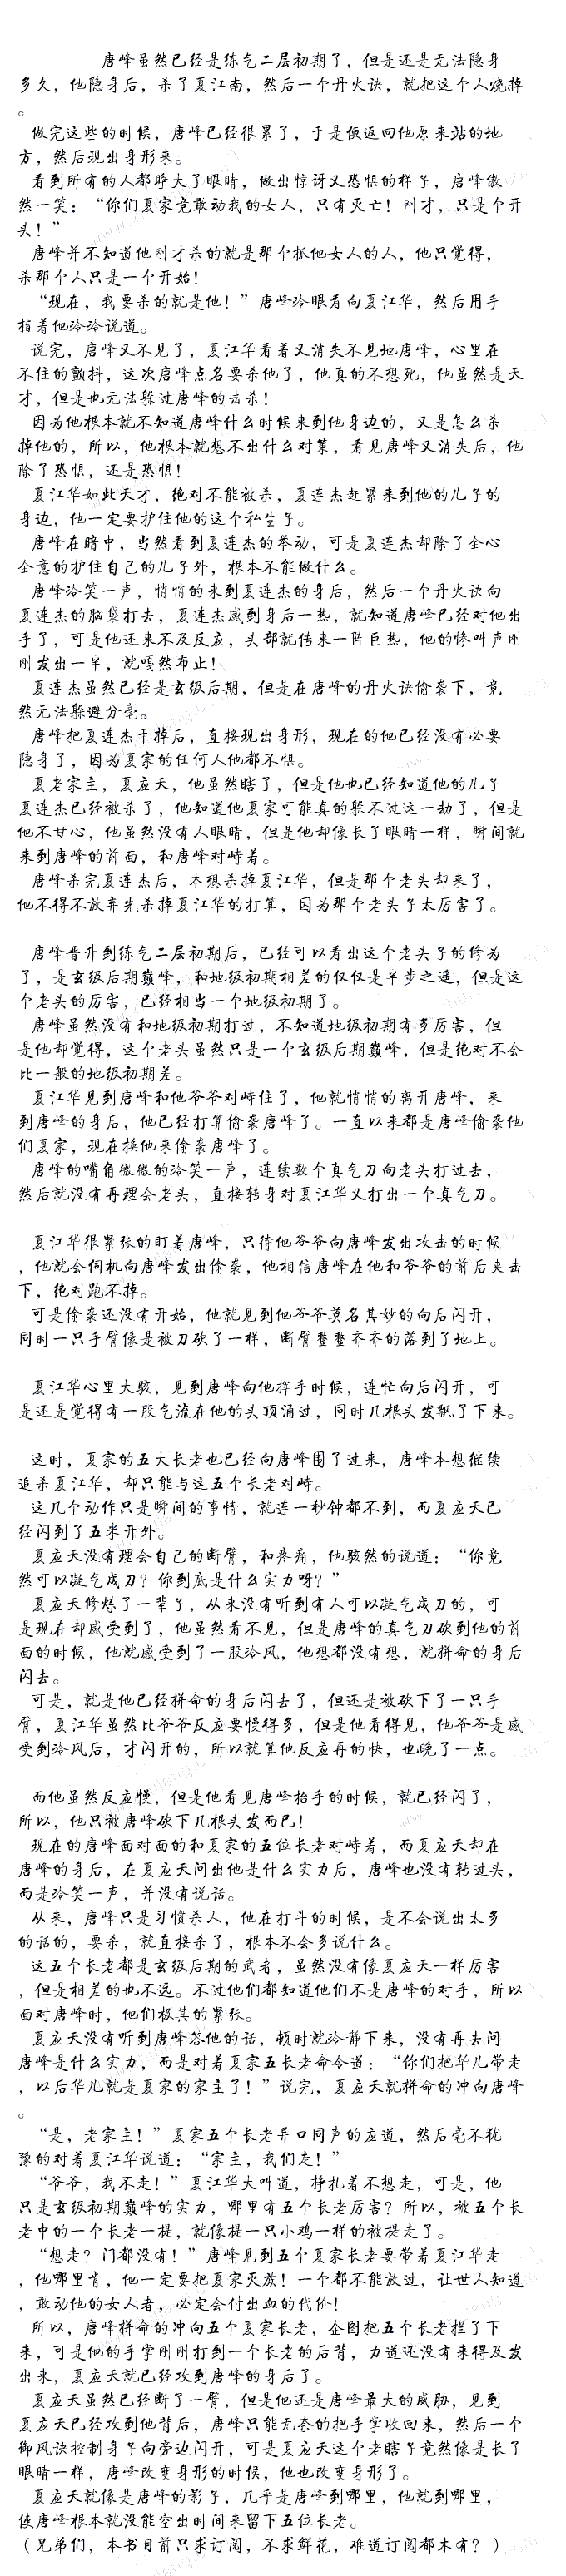 唐峰虽然已经是练气二层初期了，但是还是无法隐身
多久，他隐身后，杀了夏江南，然后一个丹火诀，就把这个人烧掉
。
做完这些的时候，唐峰已经很累了，于是便返回他原来站的地
方，然后现出身形来。
看到所有的人都睁大了眼睛，做出惊讶又恐惧的样子，唐峰傲
然一笑：“你们夏家竟敢动我的女人，只有灭亡！刚才，只是个开
头！”
唐峰并不知道他刚才杀的就是那个抓他女人的人，他只觉得，
杀那个人只是一个开始！
“现在，我要杀的就是他！”唐峰冷眼看向夏江华，然后用手
指着他冷冷说道。
说完，唐峰又不见了，夏江华看着又消失不见地唐峰，心里在
不住的颤抖，这次唐峰点名要杀他了，他真的不想死，他虽然是天
才，但是也无法躲过唐峰的击杀！
因为他根本就不知道唐峰什么时候来到他身边的，又是怎么杀
掉他的，所以，他根本就想不出什么对策，看见唐峰又消失后，他
除了恐惧，还是恐惧！
夏江华如此天才，绝对不能被杀，夏连杰赶紧来到他的儿子的
身边，他一定要护住他的这个私生子。
唐峰在暗中，当然看到夏连杰的举动，可是夏连杰却除了全心
全意的护住自己的儿子外，根本不能做什么。
唐峰冷笑一声，悄悄的来到夏连杰的身后，然后一个丹火诀向
夏连杰的脑袋打去，夏连杰感到身后一热，就知道唐峰已经对他出
手了，可是他还来不及反应，头部就传来一阵巨热，他的惨叫声刚
刚发出一半，就嘎然而止！
夏连杰虽然已经是玄级后期，但是在唐峰的丹火诀偷袭下，竟
然无法躲避分毫。
唐峰把夏连杰干掉后，直接现出身形，现在的他已经没有必要
隐身了，因为夏家的任何人他都不惧。
夏老家主，夏应天，他虽然瞎了，但是他也已经知道他的儿子
夏连杰已经被杀了，他知道他夏家可能真的躲不过这一劫了，但是
他不甘心，他虽然没有人眼睛，但是他却像长了眼睛一样，瞬间就
来到唐峰的前面，和唐峰对峙着。
唐峰杀完夏连杰后，本想杀掉夏江华，但是那个老头却来了，
他不得不放弃先杀掉夏江华的打算，因为那个老头子太厉害了。
唐峰晋升到练气二层初期后，已经可以看出这个老头子的修为
了，是玄级后期巅峰，和地级初期相差的仅仅是半步之遥，但是这
个老头的厉害，已经相当一个地级初期了。
唐峰虽然没有和地级初期打过，不知道地级初期有多厉害，但
是他却觉得，这个老头虽然只是一个玄级后期巅峰，但是绝对不会
比一般的地级初期差。
夏江华见到唐峰和他爷爷对峙住了，他就悄悄的离开唐峰，来
到唐峰的身后，他已经打算偷袭唐峰了。一直以来都是唐峰偷袭他
们夏家，现在换他来偷袭唐峰了。
唐峰的嘴角微微的冷笑一声，连续数个真气刀向老头打过去，
然后就没有再理会老头，直接转身对夏江华又打出一个真气刀。
夏江华很紧张的盯着唐峰，只待他爷爷向唐峰发出攻击的时候
，他就会伺机向唐峰发出偷袭，他相信唐峰在他和爷爷的前后夹击
下，绝对跑不掉。
可是偷袭还没有开始，他就见到他爷爷莫名其妙的向后闪开，
同时一只手臂像是被刀砍了一样，断臂整整齐齐的落到了地上。
夏江华心里大骇，见到唐峰向他挥手时候，连忙向后闪开，可
是还是觉得有一股气流在他的头顶涌过，同时几根头发飘了下来。
这时，夏家的五大长老也已经向唐峰围了过来，唐峰本想继续
追杀夏江华，却只能与这五个长老对峙。
这几个动作只是瞬间的事情，就连一秒钟都不到，而夏应天已
经闪到了五米开外。
夏应天没有理会自己的断臂，和疼痛，他骇然的说道：“你竟
然可以凝气成刀？你到底是什么实力呀？”
夏应天修炼了一辈子，从来没有听到有人可以凝气成刀的，可
是现在却感受到了，他虽然看不见，但是唐峰的真气刀砍到他的前
面的时候，他就感受到了一股冷风，他想都没有想，就拼命的身后
闪去。
可是，就是他已经拼命的身后闪去了，但还是被砍下了一只手
臂，夏江华虽然比爷爷反应要慢得多，但是他看得见，他爷爷是感
受到冷风后，才闪开的，所以就算他反应再的快，也晚了一点。
而他虽然反应慢，但是他看见唐峰抬手的时候，就已经闪了，
所以，他只被唐峰砍下几根头发而已！
现在的唐峰面对面的和夏家的五位长老对峙着，而夏应天却在
唐峰的身后，在夏应天问出他是什么实力后，唐峰也没有转过头，
而是冷笑一声，并没有说话。
从来，唐峰只是习惯杀人，他在打斗的时候，是不会说出太多
的话的，要杀，就直接杀了，根本不会多说什么。
这五个长老都是玄级后期的武者，虽然没有像夏应天一样厉害
，但是相差的也不远。不过他们都知道他们不是唐峰的对手，所以
面对唐峰时，他们极其的紧张。
夏应天没有听到唐峰答他的话，顿时就冷静下来，没有再去问
唐峰是什么实力，而是对着夏家五长老命令道：“你们把华儿带走
，以后华儿就是夏家的家主了！”说完，夏应天就拼命的冲向唐峰
。
“是，老家主！”夏家五个长老异口同声的应道，然后毫不犹
豫的对着夏江华说道：“家主，我们走！”
“爷爷，我不走！”夏江华大叫道，挣扎着不想走，可是，他
只是玄级初期巅峰的实力，哪里有五个长老厉害？所以，被五个长
老中的一个长老一提，就像提一只小鸡一样的被提走了。
“想走？门都没有！”唐峰见到五个夏家长老要带着夏江华走
，他哪里肯，他一定要把夏家灭族！一个都不能放过，让世人知道
，敢动他的女人者，必定会付出血的代价！
所以，唐峰拼命的冲向五个夏家长老，企图把五个长老拦了下
来，可是他的手掌刚刚打到一个长老的后背，力道还没有来得及发
出来，夏应天就已经攻到唐峰的身后了。
夏应天虽然已经断了一臂，但是他还是唐峰最大的威胁，见到
夏应天已经攻到他背后，唐峰只能无奈的把手掌收回来，然后一个
御风诀控制身子向旁边闪开，可是夏应天这个老瞎子竟然像是长了
眼睛一样，唐峰改变身形的时候，他也改变身形了。
夏应天就像是唐峰的影子，几乎是唐峰到哪里，他就到哪里，
使唐峰根本就没能空出时间来留下五位长老。
（兄弟们，本书目前只求订阅，不求鲜花，难道订阅都木有？）